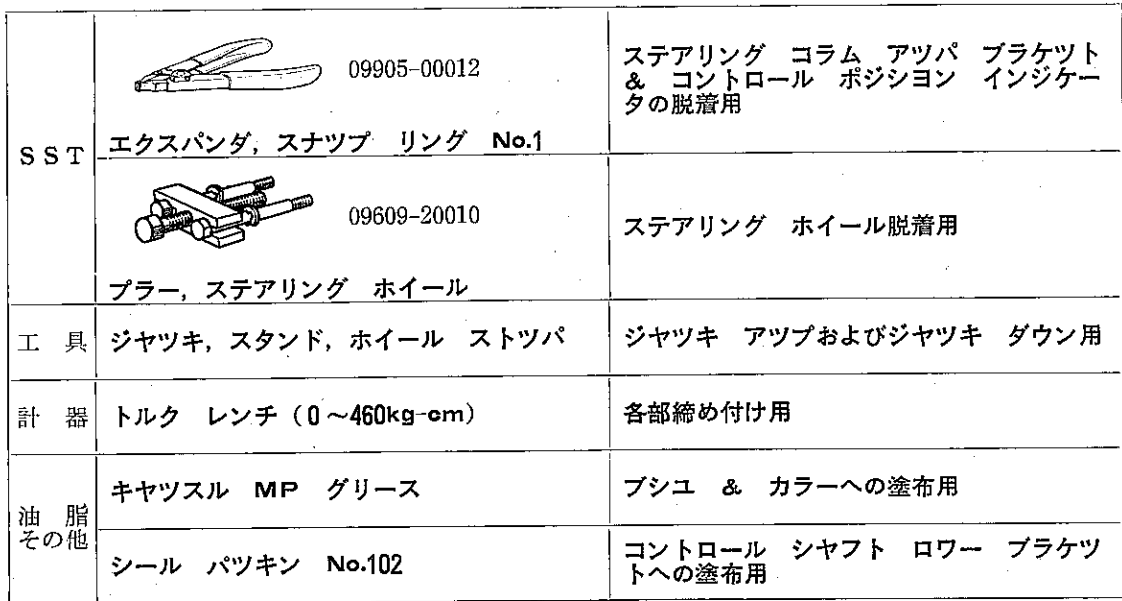 SST
09905-00012
エクスパンダ, スナツプ リング No.1
ステアリング コラム アツパ ブラケツト
& コントロール ポジシヨン インジケー
タの脱着用
09609-20010
プラー, ステアリング ホイール
ステアリング ホイール脱着用
工 具
ジヤツキ, スタンド, ホイール ストツパ
ジヤツキ アツプおよびジヤツキ ダウン用
計 器
トルク レンチ (0～460kg-cm)
各部締め付け用
油 脂
その他
キヤツスル MP グリース
ブシユ & カラーへの塗布用
シール パツキン No.102
コントロール シヤフト ロワー ブラケツ
トへの塗布用